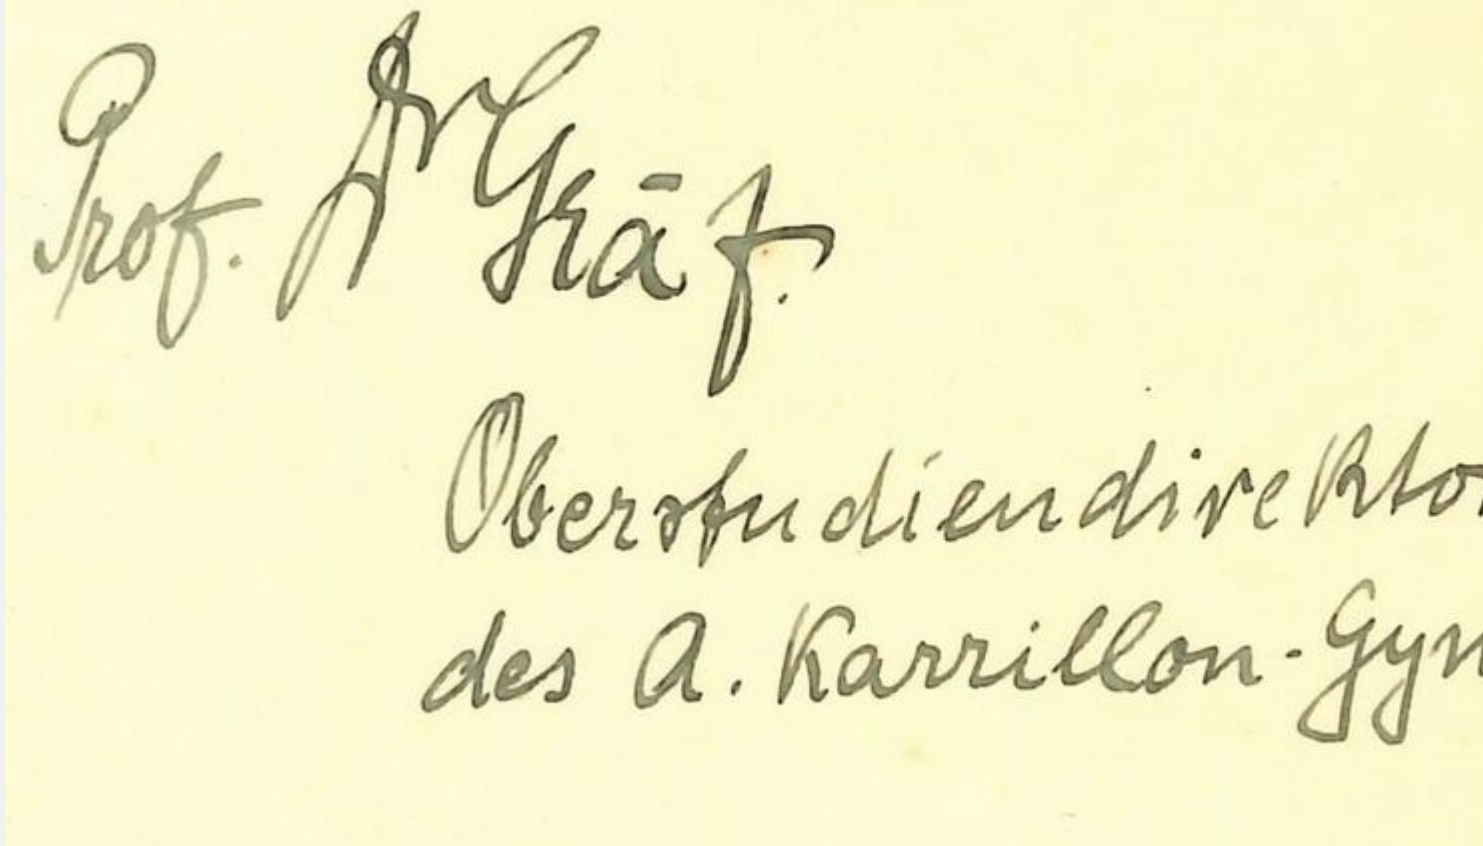 Prof. Dr Gräf.
Oberstudiendirekto
des A. Karrillon-Gym